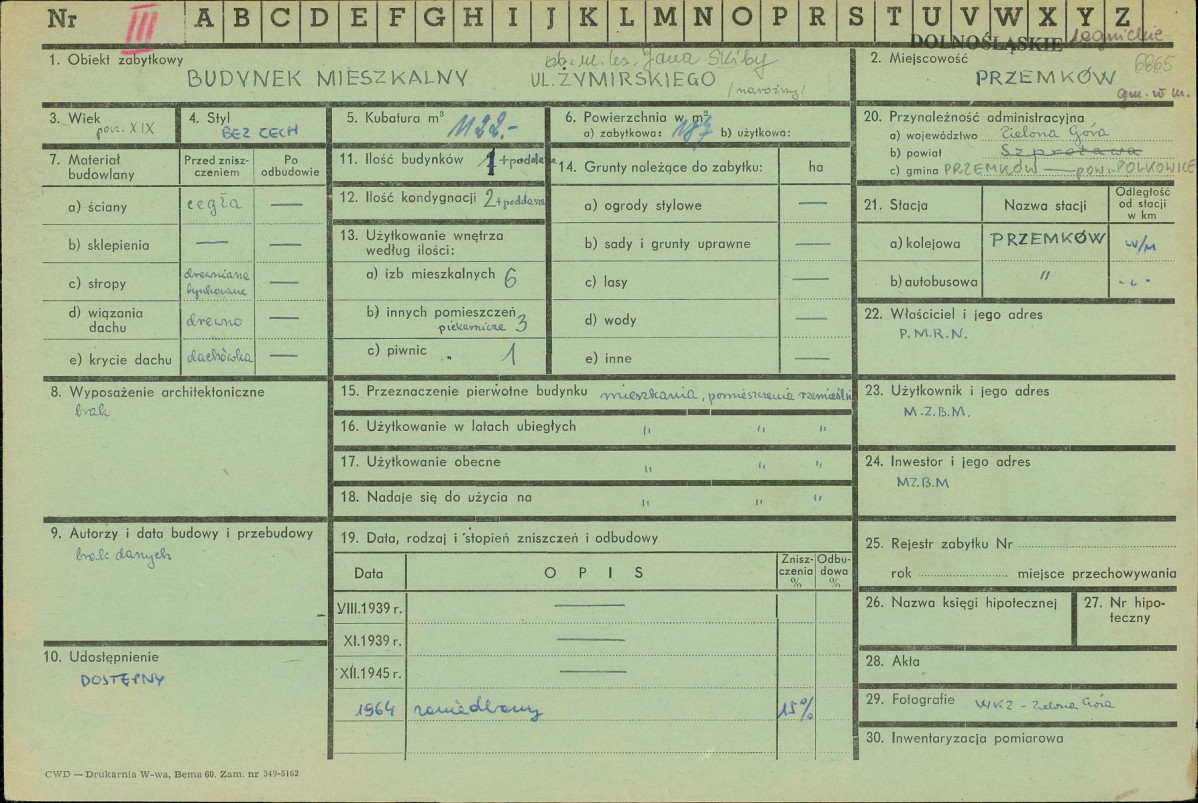 Nr III A B C D E F G H I J K L M N O P R S T U V W X Y Z
DOLNOŚLĄSKIE legnickie
1. Obiekt zabytkowy
ob. ul. ks. Jana Skiby
BUDYNEK MIESZKALNY UL. ŻYMIRSKIEGO /narożny/
2. Miejscowość 6865
PRZEMKÓW
gm. w m.
3. Wiek
poł. XIX
4. Styl
BEZ CECH
5. Kubatura m³ 1122.-
6. Powierzchnia w m²
a) zabytkowa: 187 b) użytkowa:
7. Materiał budowlany
Przed zniszczeniem
Po odbudowie
a) ściany cegła —
b) sklepienia — —
c) stropy drewniane tynkowane —
d) wiązania dachu drewno —
e) krycie dachu dachówka —
8. Wyposażenie architektoniczne
brak
9. Autorzy i data budowy i przebudowy
brak danych
10. Udostępnienie
DOSTĘPNY
11. Ilość budynków 1 + poddasze
12. Ilość kondygnacji 2 + poddasze
13. Użytkowanie wnętrza
według ilości:
a) izb mieszkalnych 6
b) innych pomieszczeń
piekarnicze 3
c) piwnic " 1
14. Grunty należące do zabytku: ha
a) ogrody stylowe —
b) sady i grunty uprawne —
c) lasy —
d) wody —
e) inne —
15. Przeznaczenie pierwotne budynku mieszkania, pomieszczenia rzemieśln
16. Użytkowanie w latach ubiegłych " " "
17. Użytkowanie obecne " " "
18. Nadaje się do użycia na " " "
19. Data, rodzaj i stopień zniszczeń i odbudowy
Data O P I S Zniszczenia % Odbudowa %
VIII.1939 r. —
XI.1939 r. —
XII.1945 r. —
1964 zaniedbany 15%
20. Przynależność administracyjna
a) województwo Zielona Góra
b) powiat Szprotawa
c) gmina PRZEMKÓW — pow. POLKOWICE
21. Stacja Nazwa stacji Odległość od stacji w km
a) kolejowa PRZEMKÓW w/m
b) autobusowa " - " -
22. Właściciel i jego adres
P.M.R.N.
23. Użytkownik i jego adres
M.Z.B.M.
24. Inwestor i jego adres
MZ.B.M
25. Rejestr zabytku Nr
rok miejsce przechowywania
26. Nazwa księgi hipotecznej
27. Nr hipoteczny
28. Akta
29. Fotografie WKZ - Zielona Góra
30. Inwentaryzacja pomiarowa
CWD — Drukarnia W-wa, Bema 60. Zam. nr 349-5162